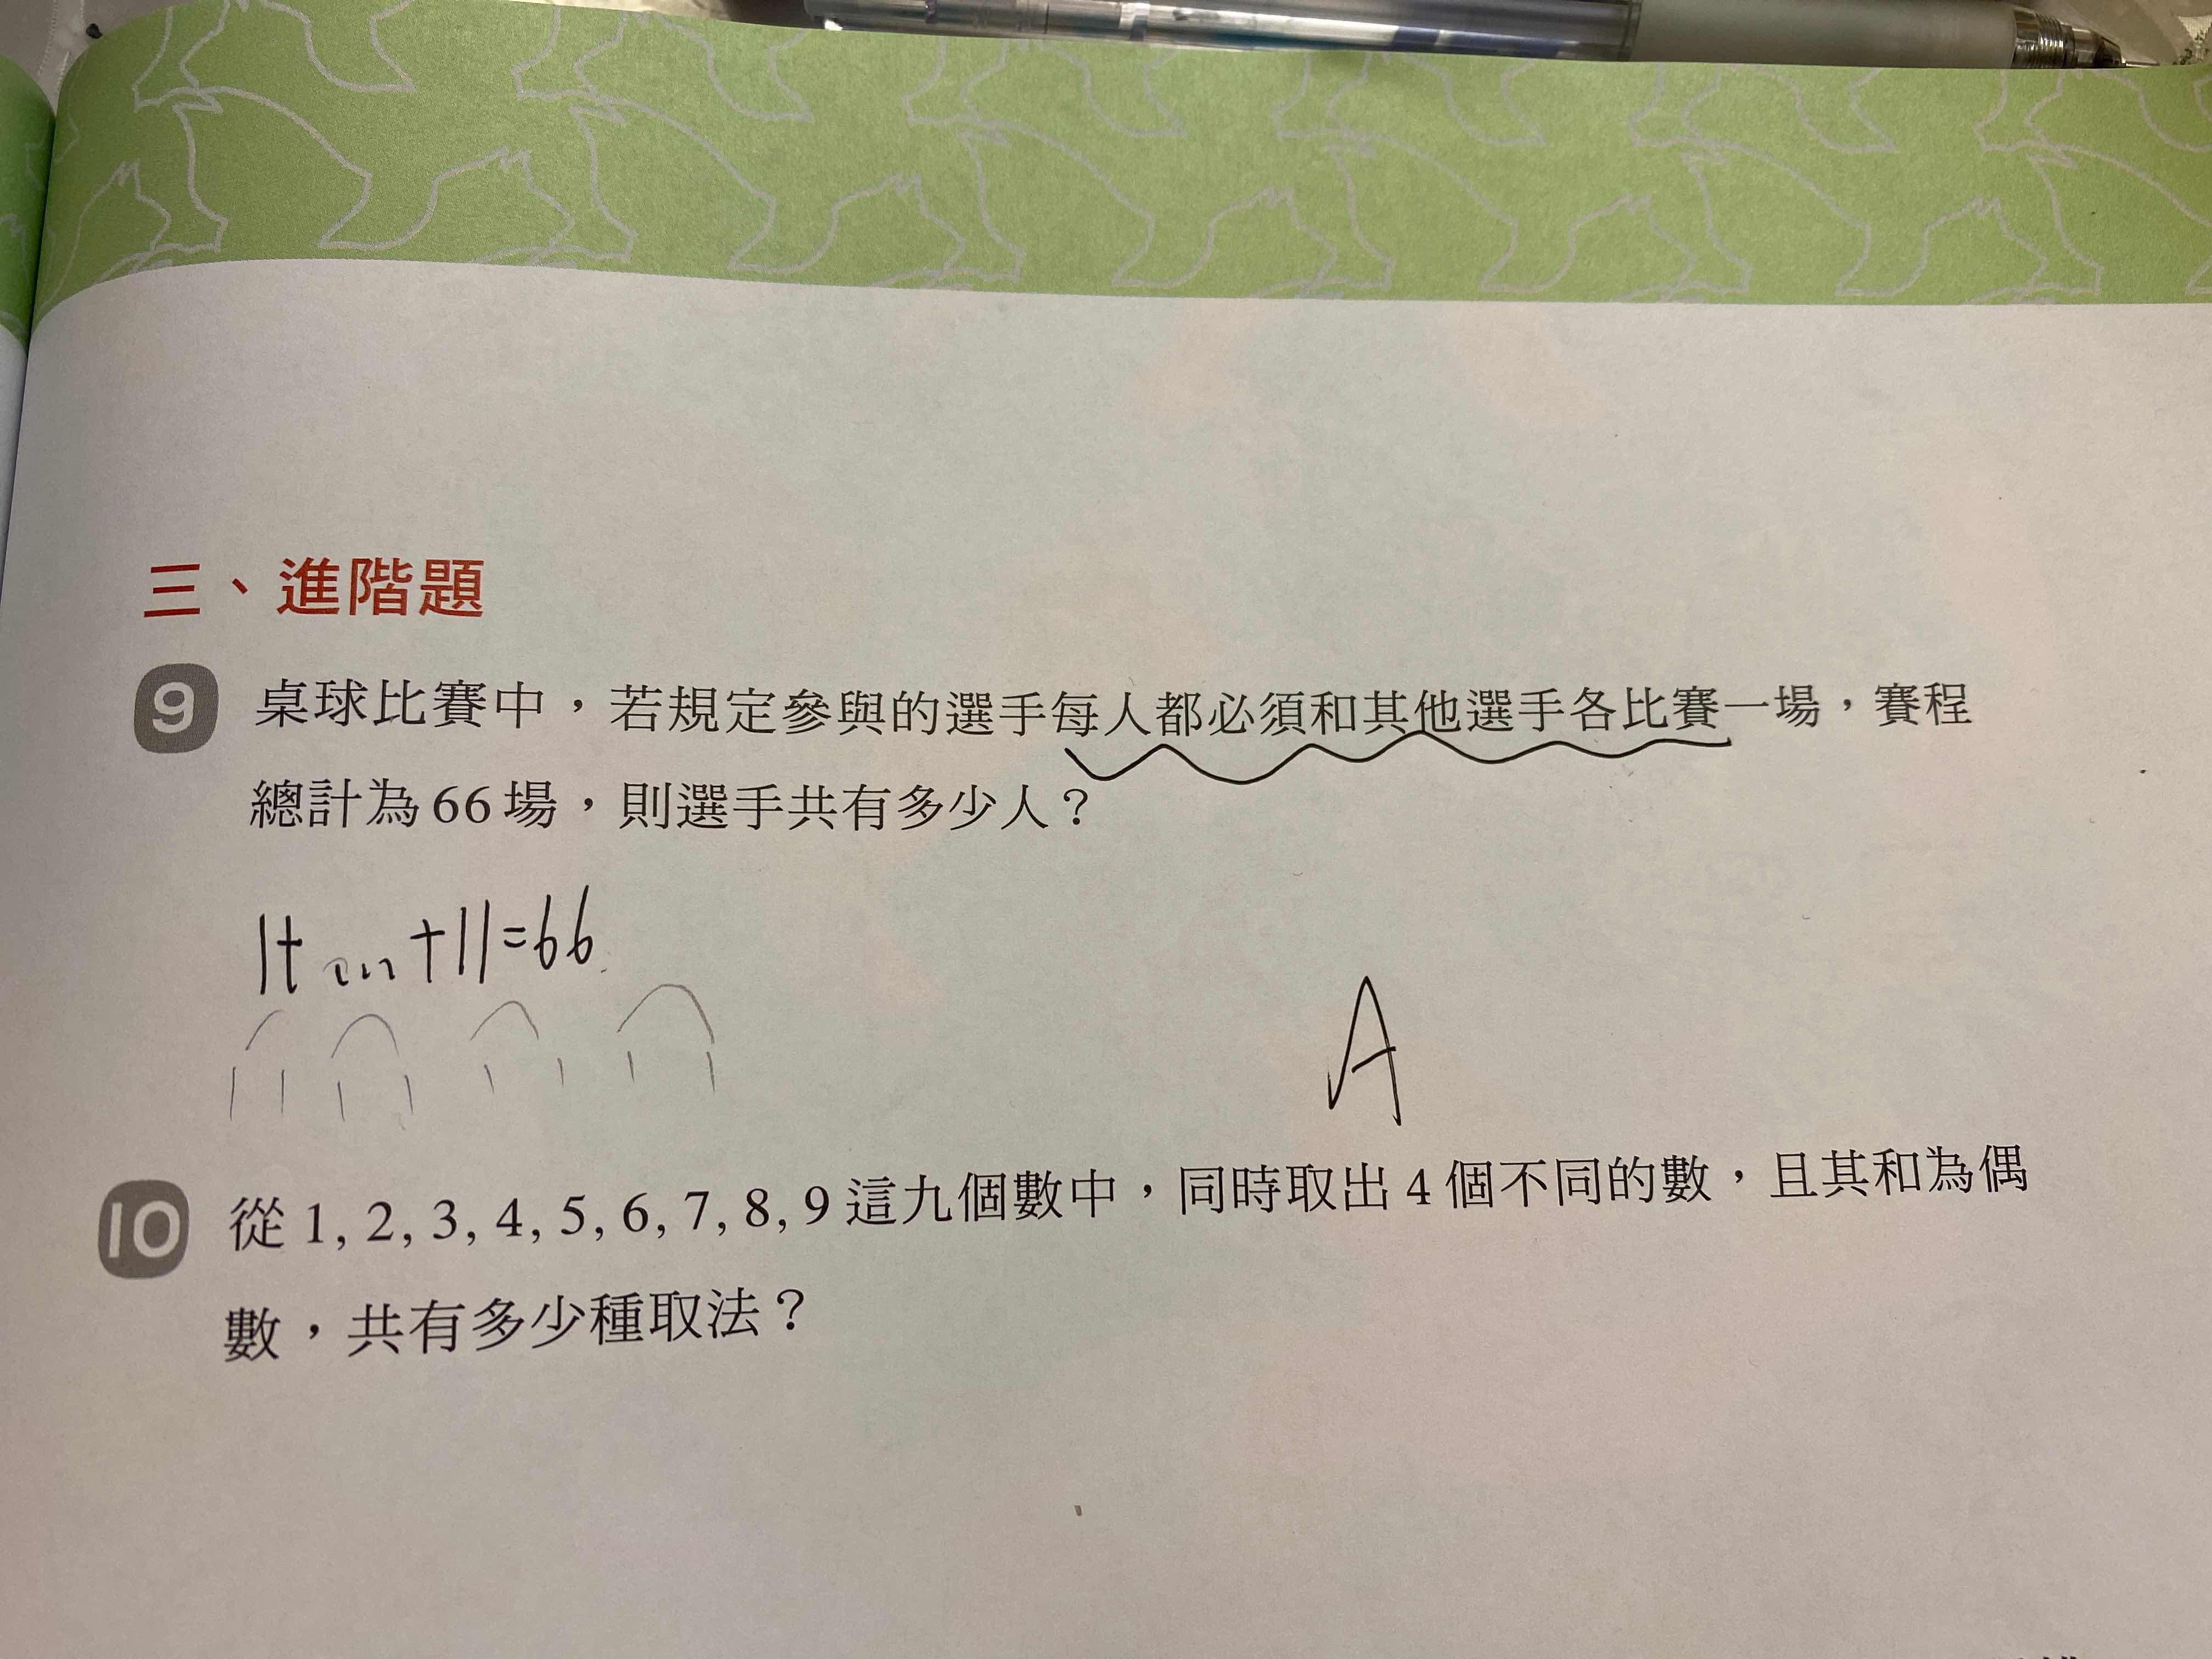 三、進階題
9 桌球比賽中，若規定參與的選手每人都必須和其他選手各比賽一場，賽程
總計為66場，則選手共有多少人？
1+ ... +11=66
A
10 從1, 2, 3, 4, 5, 6, 7, 8, 9這九個數中，同時取出4個不同的數，且其和為偶
數，共有多少種取法？